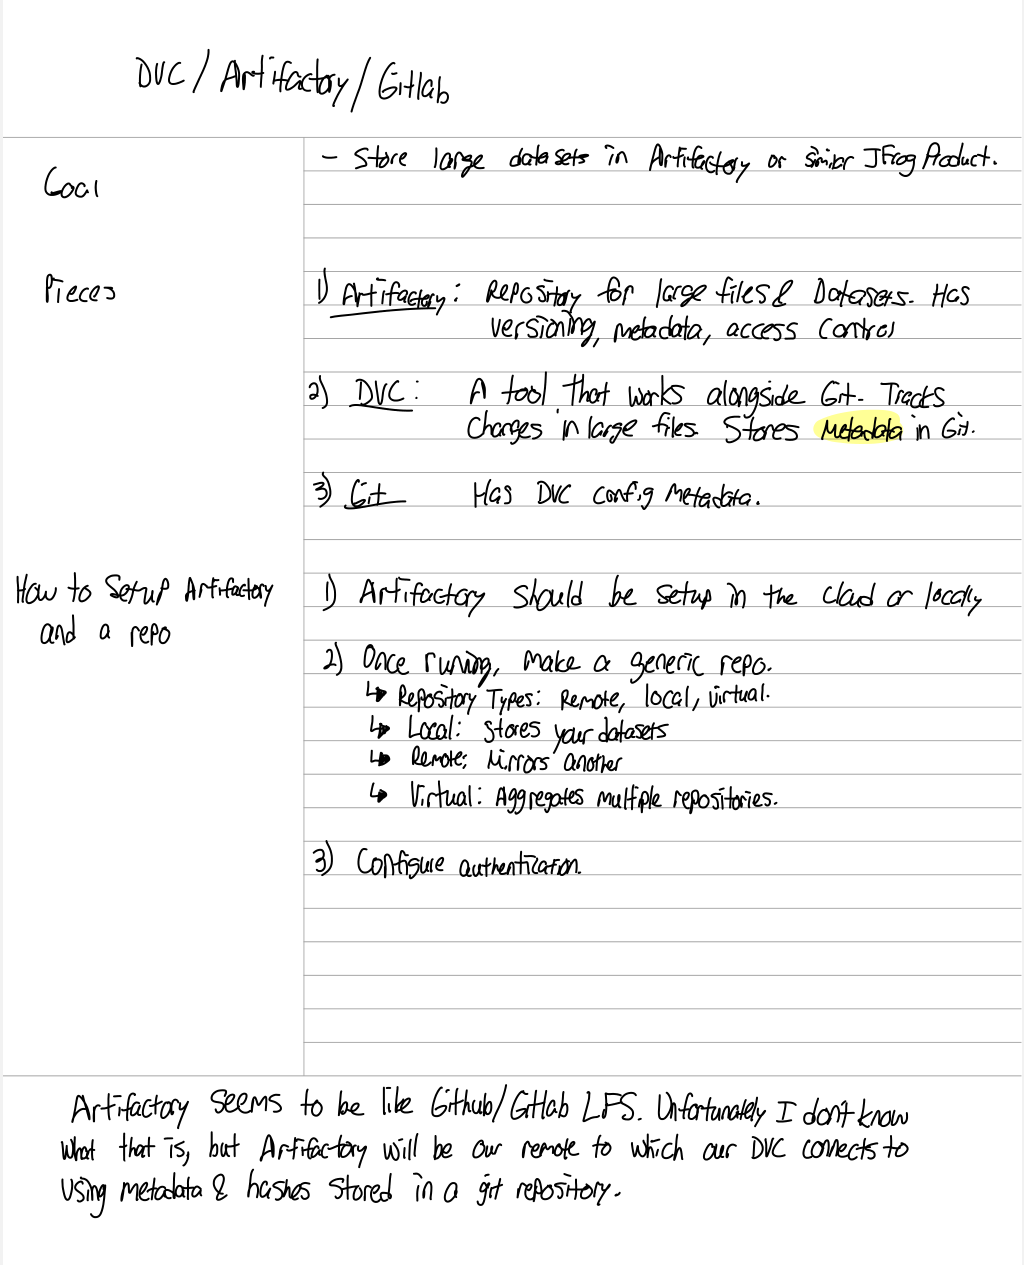 DVC / Artifactory / Gitlab
Goal
- Store large datasets in Artifactory or similar JFrog Product.
Pieces
1) Artifactory: Repository for large files & Datasets. Has
versioning, metadata, access control
2) DVC: A tool that works alongside Git. Tracks
changes in large files. Stores Metadata in Git.
3) Git Has DVC config metadata.
How to Setup Artifactory
and a repo
1) Artifactory should be setup in the cloud or locally
2) Once runing, make a generic repo.
↳ Repository Types: Remote, local, virtual.
↳ Local: Stores your datasets
↳ Remote: Mirrors another
↳ Virtual: Aggregates multiple repositories.
3) Configure authentication.
Artifactory seems to be like Github/Gitlab LFS. Unfortunately I don't know
what that is, but Artifactory will be our remote to which our DVC connects to
using metadata & hashes stored in a git repository.